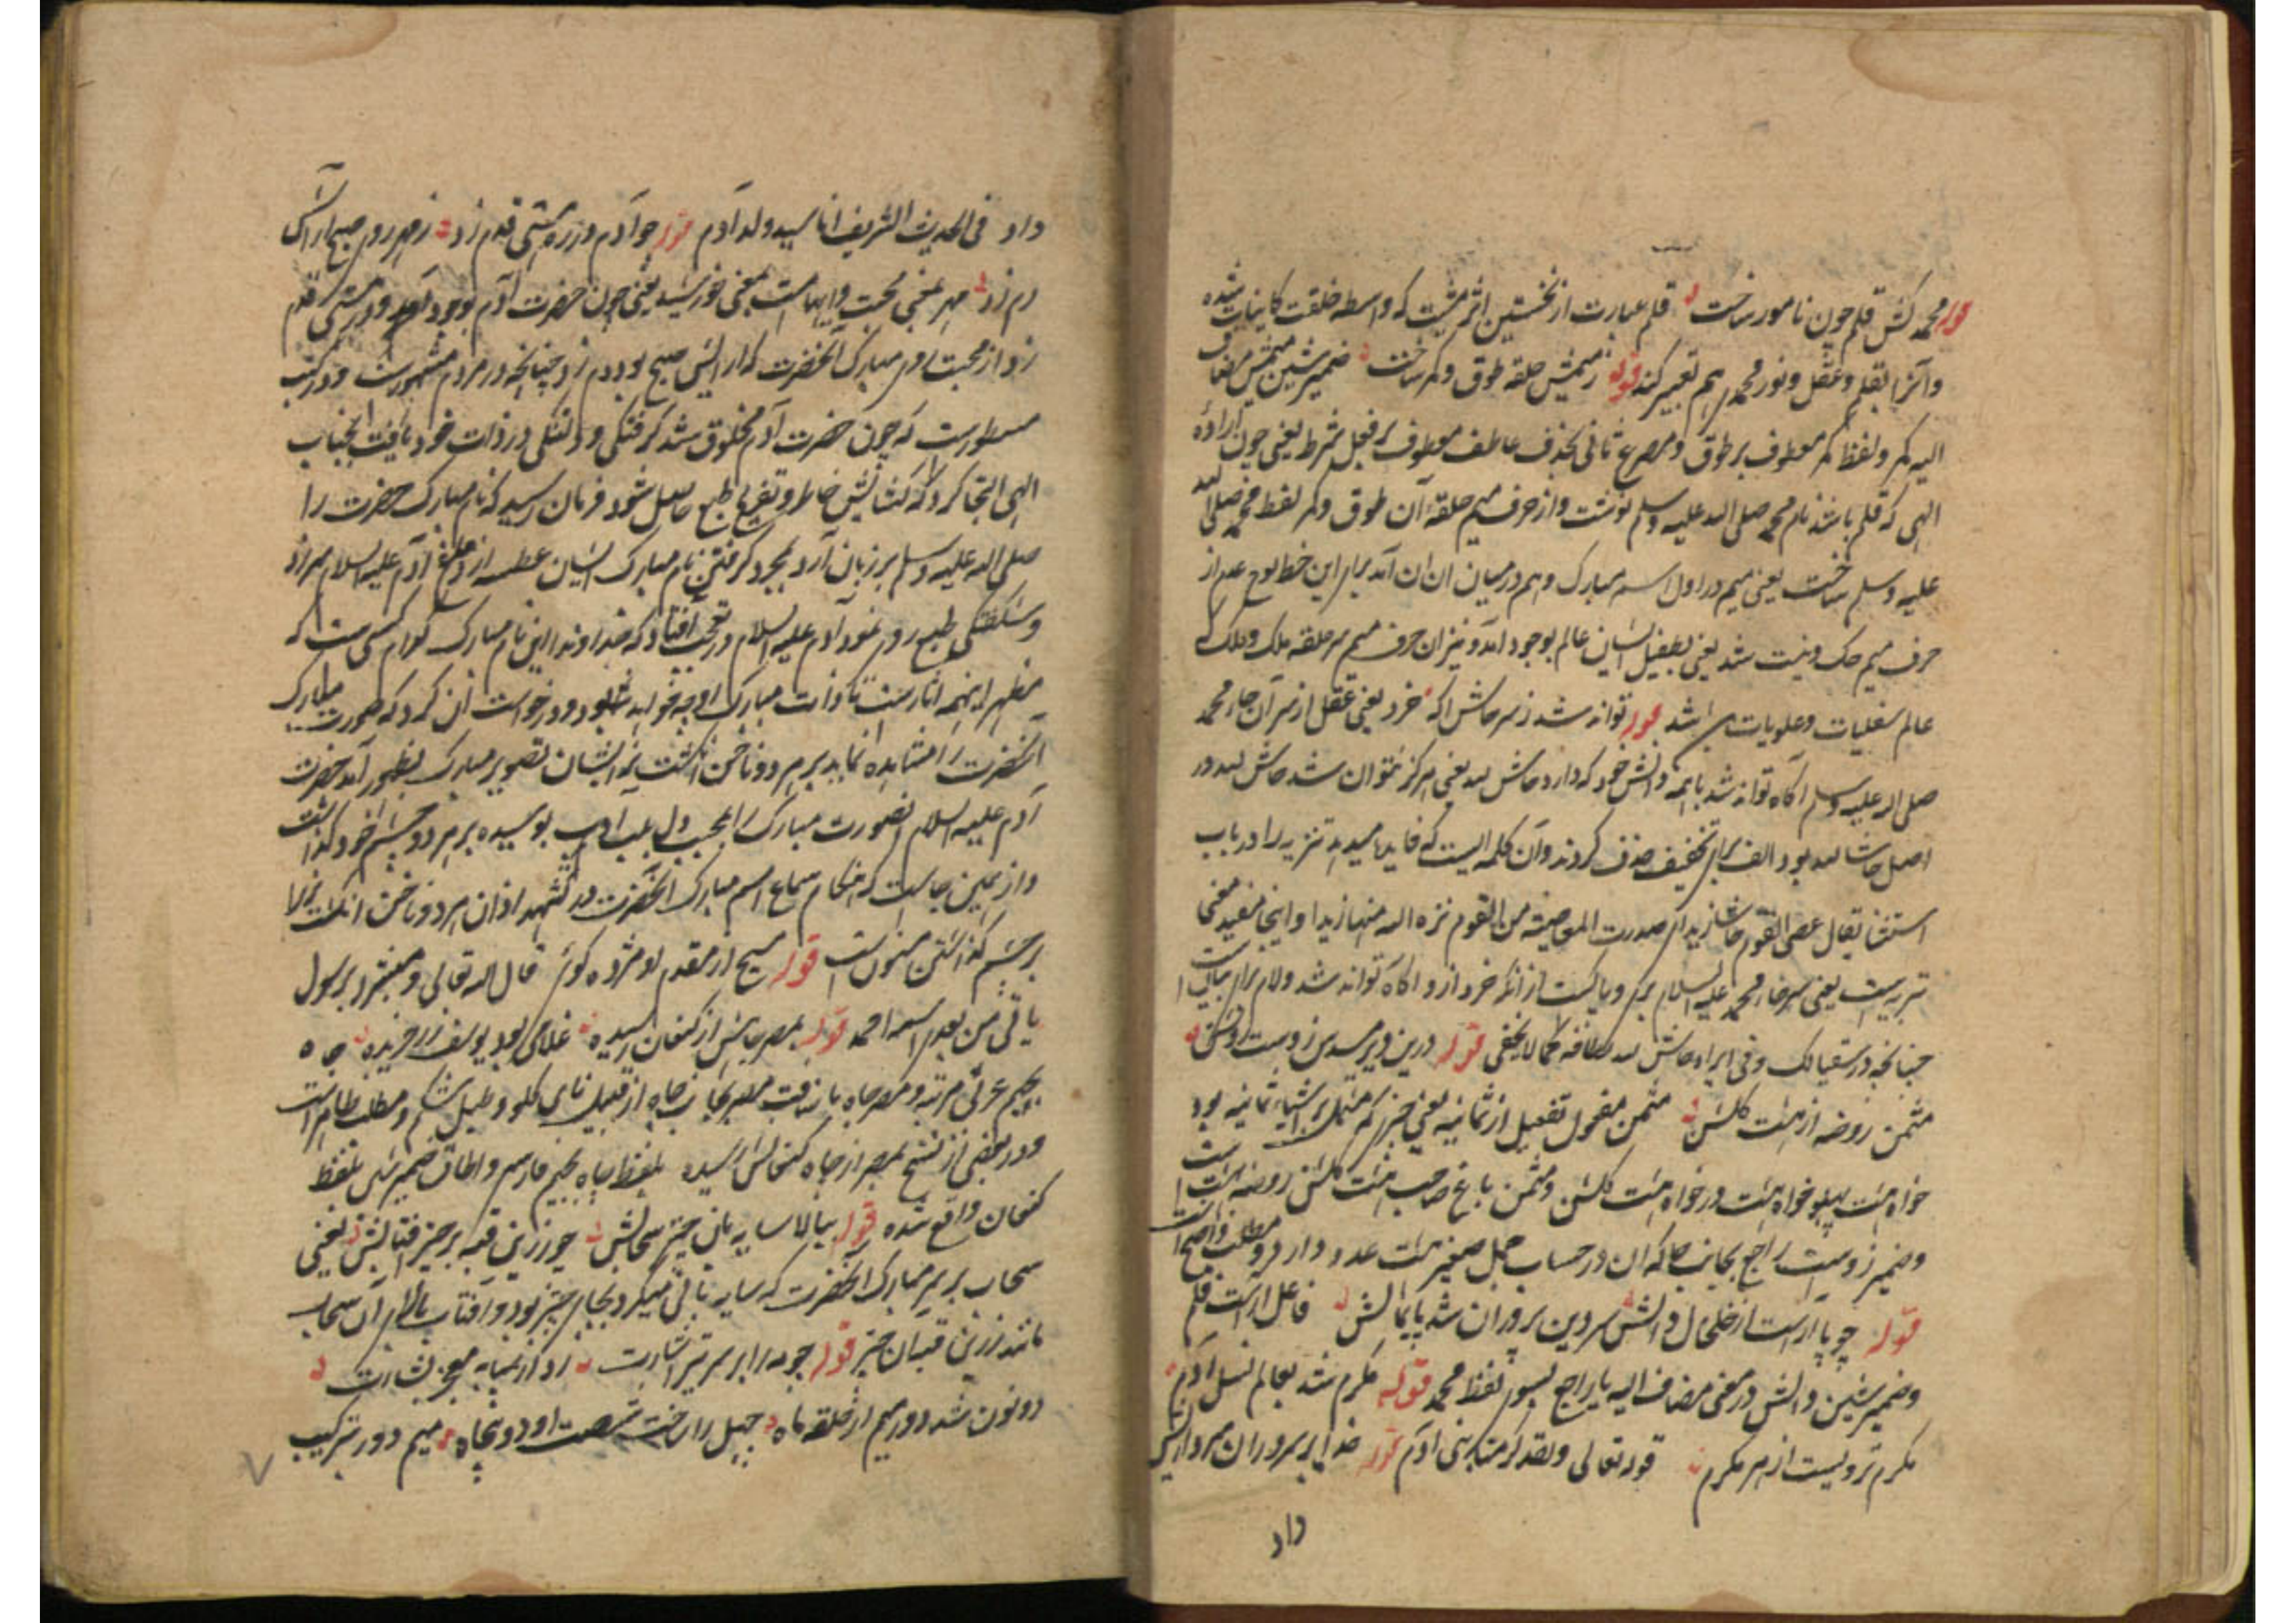 قوله محمد کش قلم چون نامور ساخت قلم عبارت از نخستین اثر مشیت که واسطه خلقت کاینات شده
و آنرا بقلم و عقل و نور محمدی هم تعبیر کنند قوله ز میمش حلقه طوق و کمر ساخت ضمیر شین میمش مضاف
الیه کمر و لفظ کمر معطوف بر طوق و مصرع ثانی بحذف عاطف معطوف بر فعل شرط یعنی چون اراده
الهی که قلم باشد نام محمد صلی الله علیه وسلم نوشت و از حرف میم حلقه آن طوق و کمر لفظ محمد صلی الله
علیه وسلم ساخت یعنی میم در اول اسم مبارک و هم در میان آن آمد برای این خط لوح عدم از
حرف میم حک و نیست شد یعنی بطفیل ایشان عالم بوجود آمد و نیز ان حرف میم سر حلقه ملک و فلک
عالم سفلیات و علویات شد قوله تواند شد ز سر حاش آگه خرد یعنی عقل از سر آن حای محمد
صلی الله علیه وسلم آگاه تواند شد با همه دانش خود که دارد حاش لله یعنی هرگز نتوان شد حاش لله در
اصل حاشا لله بود الف برای تخفیف حذف کردند و آن کلمه ایست که فایده میدهد تنزیه را در باب
استثنا یقال عصی القوم حاشا زید ای صدرت المعصیة من القوم نزه الله منها زیدا و اینجا مفید معنی
تبریست یعنی سر حاء محمد علیه السلام بری و پاکست از انکه خرد از و آگاه تواند شد و لام برای بیانست
چنانچه در سقیا لک و فی ایراد حاش لله لطافة کما لا یخفی قوله درین دیر مسدس ز وست روشن
مثمن روضه از هشت گلشن مثمن مفعول تفعیل از ثمانیه یعنی چیزی که مشتمل بر اشیاء ثمانیه بود
خواه هشت پهلو خواه هشت در خواه هشت گلشن و مثمن باغ صاحب هشت گلشن روضه است
و ضمیر ز وست راجع بجانب حا که آن در حساب جمل صغیر هشت عدد دارد و مطلب واضح است
قوله چو پا آراست از خلخال دالش سر دین پروران شد پایمالش فاعل آراست قلم
و ضمیر شین دالش در معنی مضاف الیه پا راجع بسوی لفظ محمد قوله مکرم شد بعالم نسل آدم
مکرم تر ویست از هر مکرم قوله تعالی ولقد کرمنا بنی آدم قوله خدا بر سروران سرداریش
داد
داد فی الحدیث الشریف انا سید ولد آدم قوله چو آدم در ره هستی قدم زد ز مهر روی صبح آراش
دم زد مهر بمعنی محبت و ایهام است بمعنی خورشید یعنی چون حضرت آدم بوجود آمد و در هستی قدم
زد از محبت روی مبارک آنحضرت که آرایش صبح بود دم زد چنانچه در مردم مشهورست و در کتب
مسطورست که چون حضرت آدم مخلوق شد گرفتگی و دلتنگی در ذات خود یافت بجناب
الهی التجا کرد که گشایش خاطر و تفریح طبع حاصل شود فرمان رسید که نام مبارک حضرت را
صلی الله علیه وسلم بر زبان آرد بمجرد گرفتن نام مبارک ایشان عطسه از دماغ آدم علیه السلام سر زد
و شگفتگی طبع رو نمود آدم علیه السلام در تعجب افتاد که خداوندا این نام مبارک کدام کسی ست که
مظهر اینهمه آثارست تا ذات مبارک او چه خواهد بود و درخواست آن کرد که صورت مبارک
آنحضرت را مشاهده نماید بر هر دو ناخن انگشت نر ایشان تصویر مبارک بظهور آمد حضرت
آدم علیه السلام آن صورت مبارک را بمحبت دل بلب ادب بوسیده بر هر دو چشم خود گذاشت
و از همین جاست که هنگام سماع اسم مبارک آنحضرت در تشهد اذان هر دو ناخن انگشت نر را
بر چشم گذاشتن مسنون است قوله مسیح از مقدم او مژده گوئی قال الله تعالی ومبشرا برسول
یاتی من بعدی اسمه احمد قوله بمصر جاهش از کنعان رسیده غلامی بود یوسف زر خریده جاه
بجیم عربی مرتبه و مصر جاه باضافت مصر بجانب جاه از قبیل نای گلو و طبل شکم و مطلب ظاهر است
و در بعضی از نسخ بمصر از چاه کنعانش رسیده بلفظ چاه بجیم فارسی و الحاق ضمیر شین بلفظ
کنعان واقع شده قوله ببالا سایه بان چتر سحابش چو زرین قبه بر چتر آفتابش یعنی
سحاب بر سر مبارک آنحضرت که سایه بانی میکرد بجای چتر بود و آفتاب بالای آن سحاب
مانند زرین قبه آن چتر قوله چو مه را بر سر تیر اشارت زد از سبابه معجز بشارت
دو نون شد دور میم از حلقه ماه چهل را ساخت شصت او دو پنجاه میم دور ترکیب